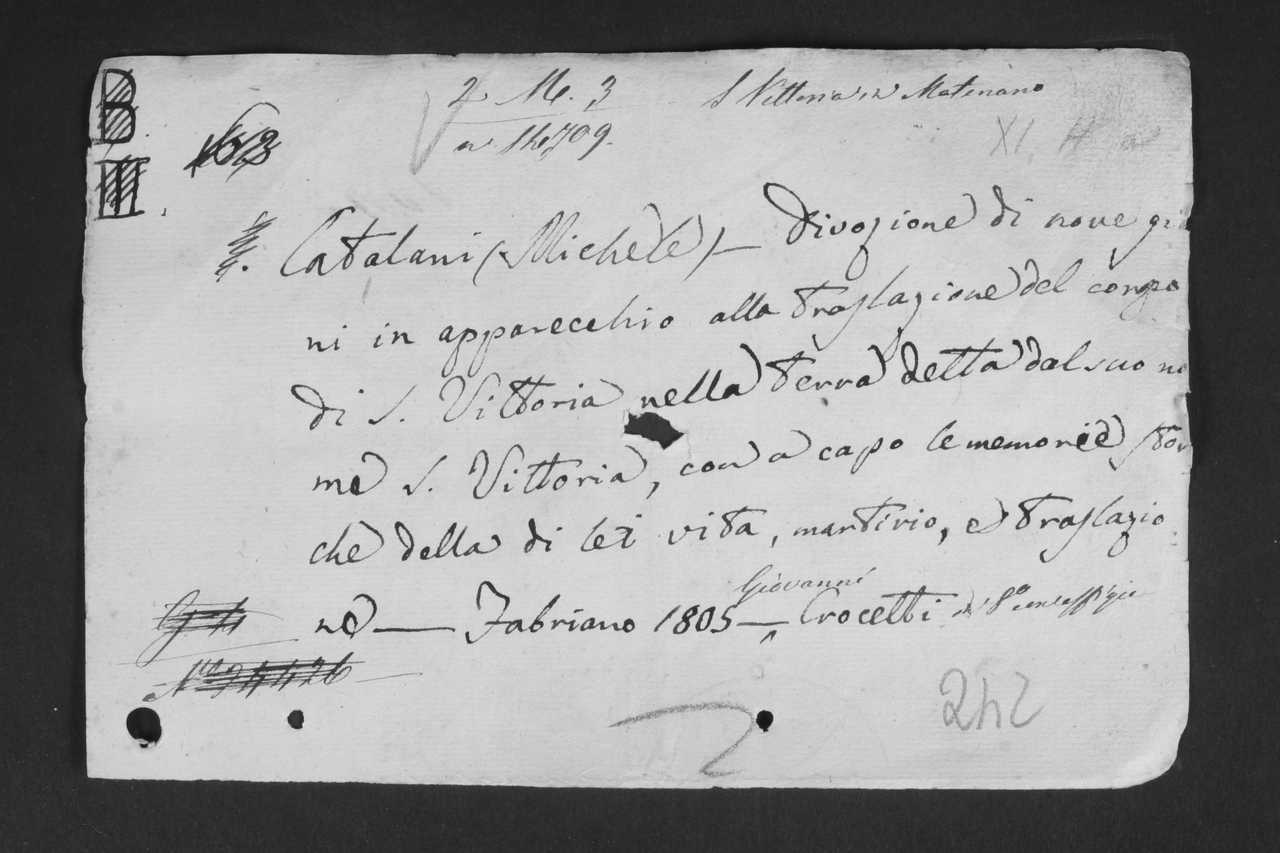 B
III.
2 M. 3
n 14709.
S Vittoria in Matenano
XI. H
Catalani (Michele) — Divozione di nove gi
ni in apparecchio alla traslazione del corpo
di S. Vittoria nella terra detta dal suo no
me S. Vittoria, con a capo le memorie stori
che della di lei vita, martirio, e traslazio
ne — Fabriano 1805 — Giovanni Crocetti in 8º con effigie
242